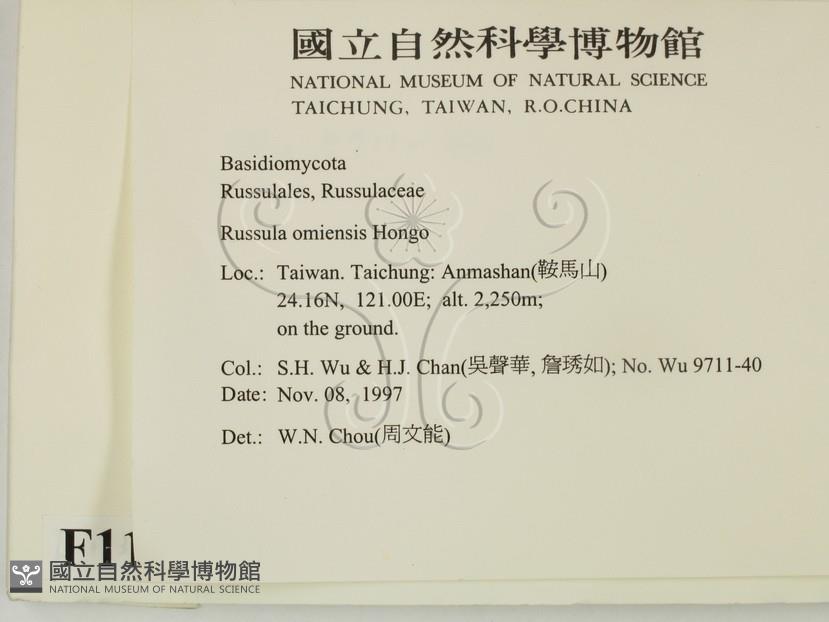 國立自然科學博物館
NATIONAL MUSEUM OF NATURAL SCIENCE
TAICHUNG, TAIWAN, R.O.CHINA
Basidiomycota
Russulales, Russulaceae
Russula omiensis Hongo
Loc.: Taiwan. Taichung: Anmashan(鞍馬山)
24.16N, 121.00E; alt. 2,250m;
on the ground.
Col.: S.H. Wu & H.J. Chan(吳聲華, 詹琇如); No. Wu 9711-40
Date: Nov. 08, 1997
Det.: W.N. Chou(周文能)
F11
國立自然科學博物館
NATIONAL MUSEUM OF NATURAL SCIENCE